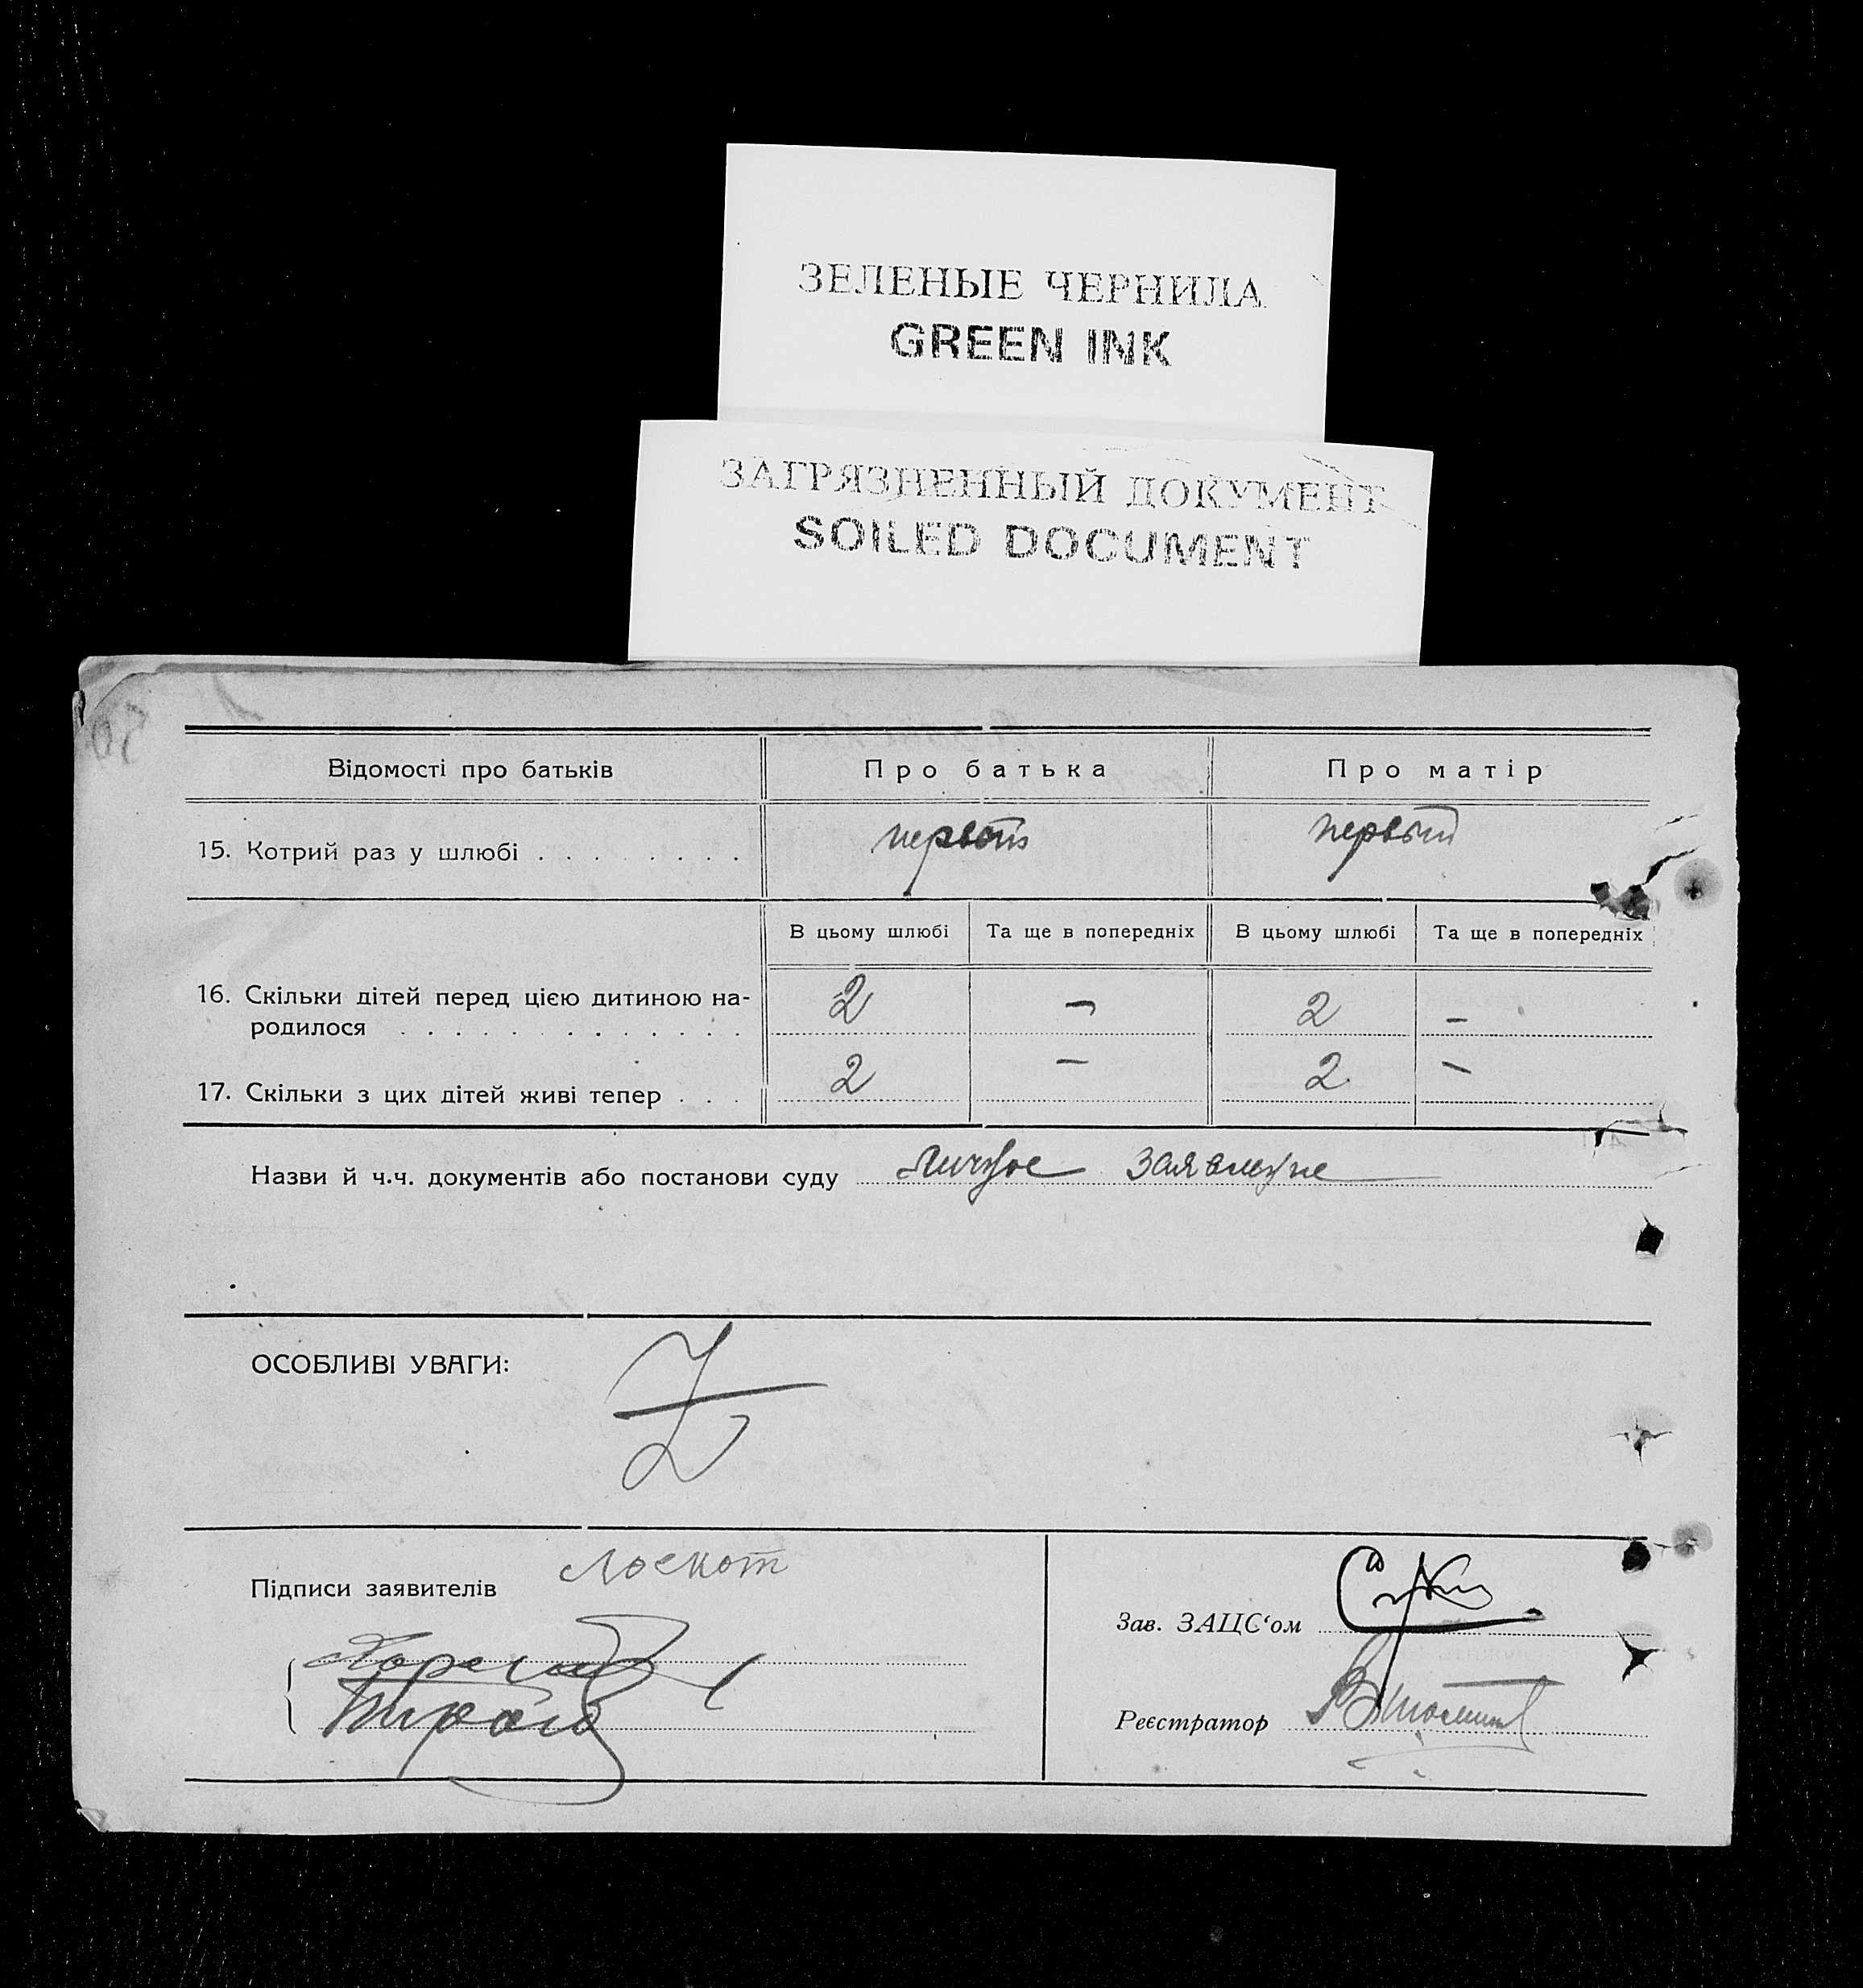 ЗЕЛЕНЫЕ ЧЕРНИЛА
GREEN INK
ЗАГРЯЗНЕННЫЙ ДОКУМЕНТ
SOILED DOCUMENT
Відомості про батьків Про батька Про матір
15. Котрий раз у шлюбі . . . . . . . . первый первый
В цьому шлюбі Та ще в попередніх В цьому шлюбі Та ще в попередніх
16. Скільки дітей перед цією дитиною на-
родилося . . . . . . . . . . . . . 2 – 2 –
17. Скільки з цих дітей живі тепер . . . 2 – 2 –
Назви й ч.ч. документів або постанови суду личное заявление
ОСОБЛИВІ УВАГИ:
Z
Підписи заявителів Лоскот
Зав. ЗАЦС‘ом
Реєстратор